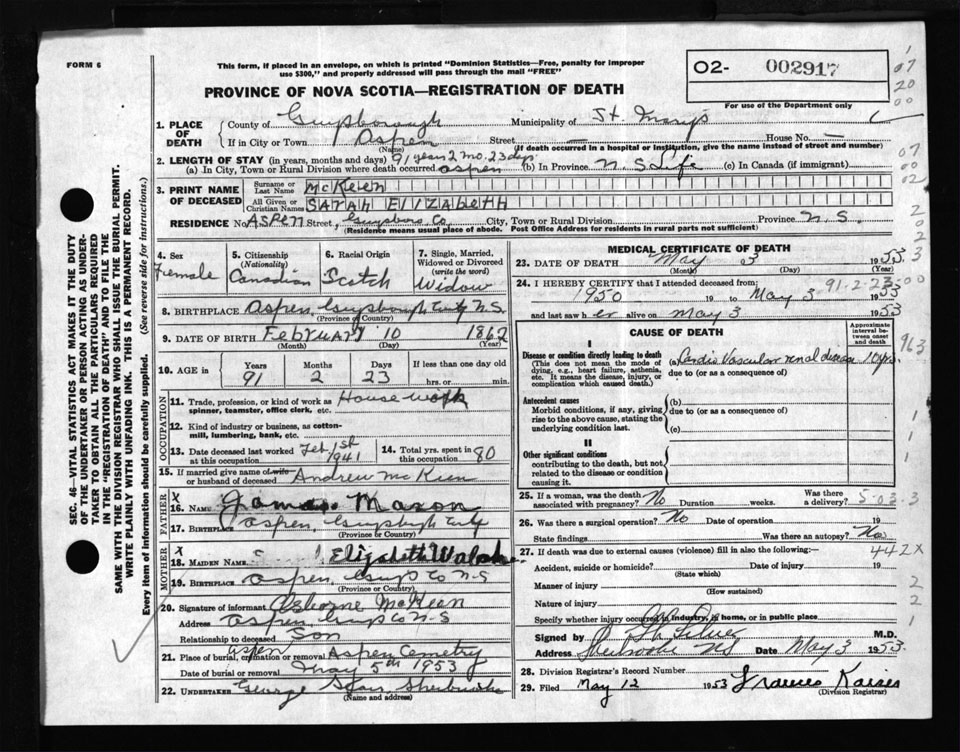 FORM 6
This form, if placed in an envelope, on which is printed "Dominion Statistics—Free, penalty for improper
use $300," and properly addressed will pass through the mail "FREE"
O2- 002917
PROVINCE OF NOVA SCOTIA—REGISTRATION OF DEATH
For use of the Department only
1. PLACE OF DEATH
County of Guysborough Municipality of St. Marys
If in City or Town Aspen Street House No. —
(Name) (If death occurred in a hospital or institution, give the name instead of street and number)
2. LENGTH OF STAY (in years, months and days) 91 years 2 mo. 23 days
(a) In City, Town or Rural Division where death occurred aspen (b) In Province N.S. Life (c) In Canada (if immigrant)
3. PRINT NAME OF DECEASED
Surname or Last Name McKeen
All Given or Christian Names SARAH ELIZABETH
RESIDENCE No. ASPEN Street, Guysboro Co City, Town or Rural Division Province N.S.
(Residence means usual place of abode. Post Office Address for residents in rural parts not sufficient)
4. Sex Female
5. Citizenship (Nationality) Canadian
6. Racial Origin Scotch
7. Single, Married, Widowed or Divorced (write the word) Widow
8. BIRTHPLACE Aspen, N.S.
(Province or Country)
9. DATE OF BIRTH February 10 1862
(Month) (Day) (Year)
10. AGE in Years Months Days If less than one day
91 2 23 hrs. or min.
OCCUPATION
11. Trade, profession, or kind of work as spinner, teamster, office clerk, etc. House work
12. Kind of industry or business, as cotton-mill, lumbering, bank, etc.
13. Date deceased last worked at this occupation Feb 1st 1941
14. Total yrs. spent in this occupation 80
15. If married give name of wife or husband of deceased Andrew McKeen
FATHER
X
16. NAME James Mason
17. BIRTHPLACE Aspen,
(Province or Country)
MOTHER
X
18. MAIDEN NAME Elizabeth
19. BIRTHPLACE aspen, Guys Co N-S
(Province or Country)
20. Signature of informant Osborne McKeen
Address aspen, Guys co N-S
Relationship to deceased Son
21. Place of burial, cremation or removal aspen Aspen Cemetery
Date of burial or removal May 5th 1953
22. UNDERTAKER George Sherbrooke
(Name and address)
MEDICAL CERTIFICATE OF DEATH
23. DATE OF DEATH May 3 1953
(Month) (Day) (Year)
91-2-23
24. I HEREBY CERTIFY that I attended deceased from
1950 19 to May 3 1953
and last saw h er alive on May 3 1953
CAUSE OF DEATH
Approximate interval between onset and death
I
Disease or condition directly leading to death
(This does not mean the mode of dying, e.g., heart failure, asthenia, etc. It means the disease, injury, or complication which caused death.)
(a) Cardio Vascular renal disease 10 yrs.
due to (or as a consequence of)
Antecedent causes
Morbid conditions, if any, giving rise to the above cause, stating the underlying condition last.
(b)
due to (or as a consequence of)
(c)
II
Other significant conditions
contributing to the death, but not related to the disease or condition causing it.
25. If a woman, was the death associated with pregnancy? No Duration weeks. Was there a delivery?
5-03-3
26. Was there a surgical operation? No Date of operation 19
State findings Was there an autopsy? No
27. If death was due to external causes (violence) fill in also the following:—
442X
Accident, suicide or homicide? Date of injury 19
(State which)
Manner of injury
(How sustained)
Nature of injury
Specify whether injury occurred in industry, in home, or in public place
Signed by M.D.
Address Sherbrooke NS Date May 3 1953.
28. Division Registrar's Record Number
29. Filed May 12 1953 Frances Kaiser
(Division Registrar)
SEC. 46—VITAL STATISTICS ACT MAKES IT THE DUTY
OF THE UNDERTAKER OR PERSON ACTING AS UNDER-
TAKER TO OBTAIN ALL THE PARTICULARS REQUIRED
IN THE "REGISTRATION OF DEATH" AND TO FILE THE
SAME WITH THE DIVISION REGISTRAR WHO SHALL ISSUE THE BURIAL PERMIT.
WRITE PLAINLY WITH UNFADING INK. THIS IS A PERMANENT RECORD.
Every item of information should be carefully supplied. (See reverse side for instructions.)